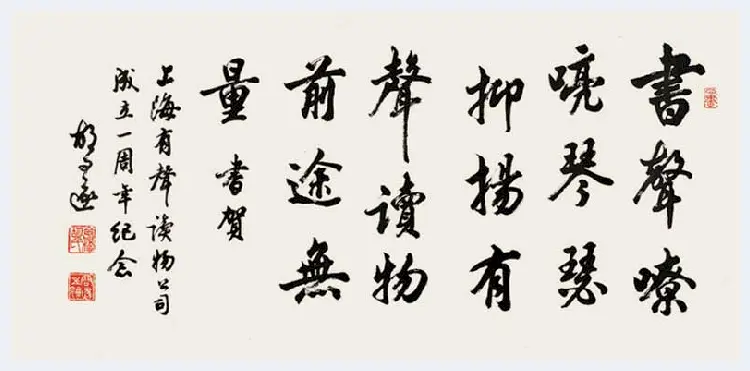 書聲嘹
喨琴瑟
抑揚有
聲讀物
前途無
量 書賀
上海有聲讀物公司
成立一周年紀念
胡問遂